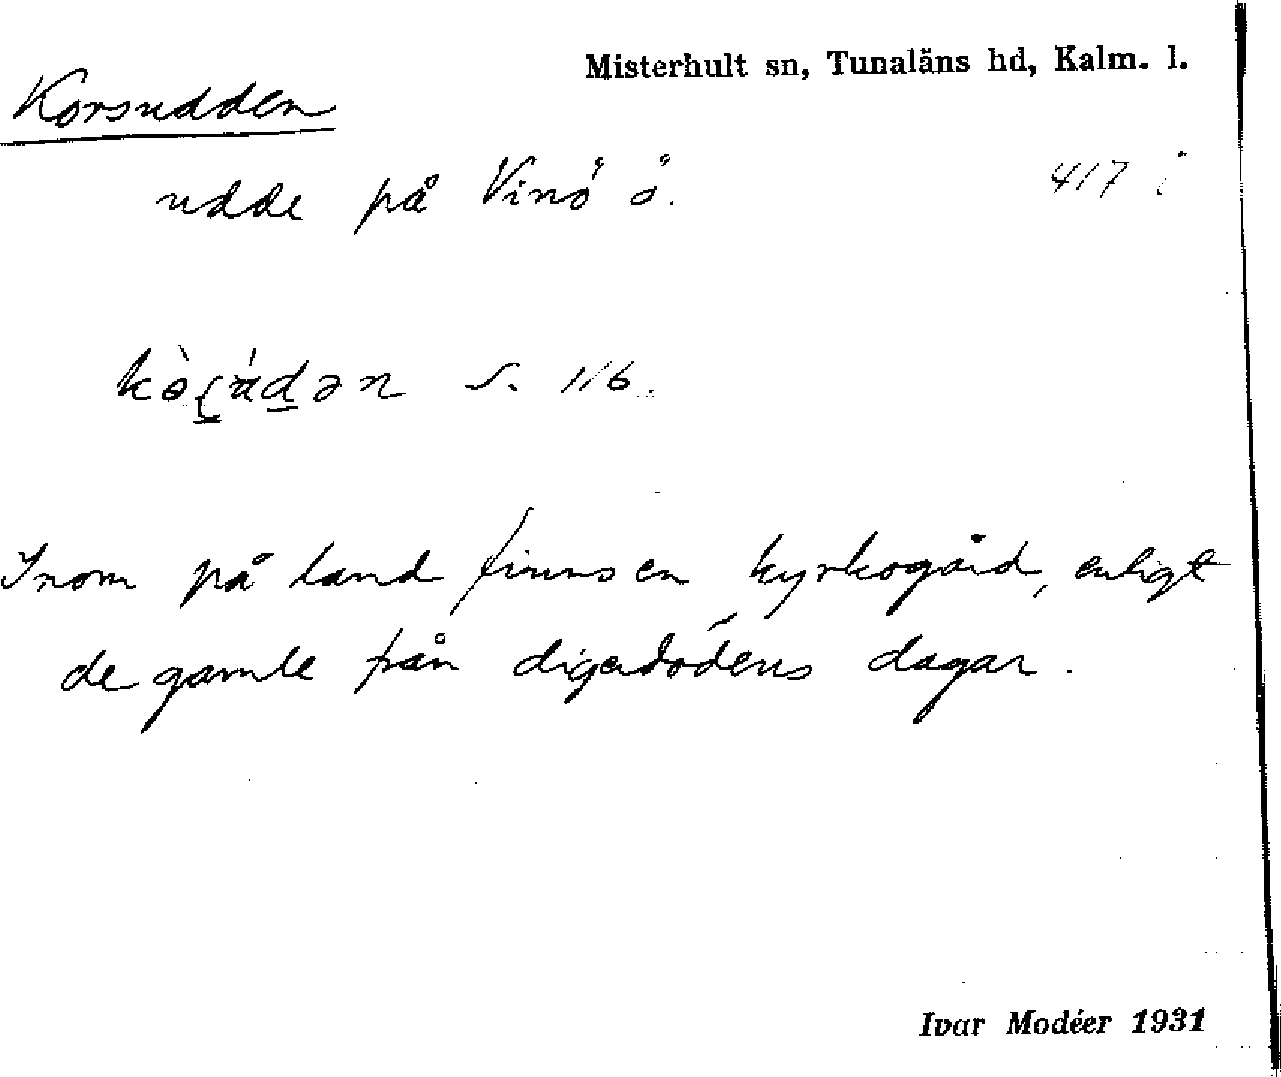 Misterhult sn, Tunaläns hd, Kalm. l.
Korsudden
udde på Vinö ö.
417 i
S. 116.
Inom på land finns en kyrkogård, enligt
de gamle från digerdödens dagar.
Ivar Modéer 1931